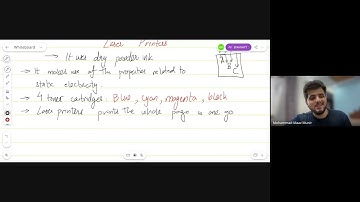 Whiteboard
Laser Printers
→ It uses dry powder ink
→ It makes use of the properties related to
static electricity.
→ 4 toner cartridges: Blue, cyan, magenta, black
→ Laser printers prints the whole page in one go
A
B
C